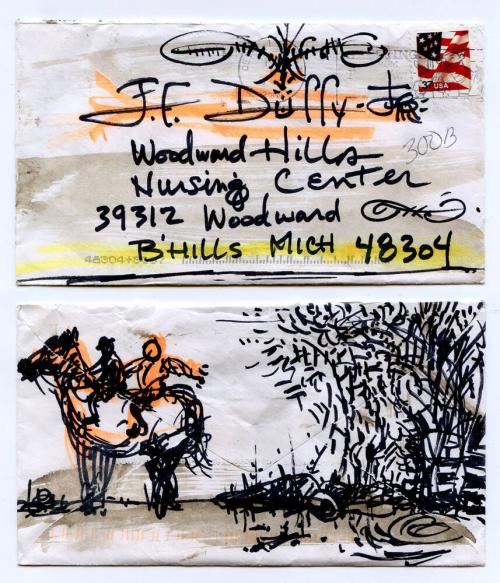 37 USA
J.F. Duffy-Jr
300B
Woodward Hills
Nursing Center
39312 Woodward
B'HILLS MICH 48304